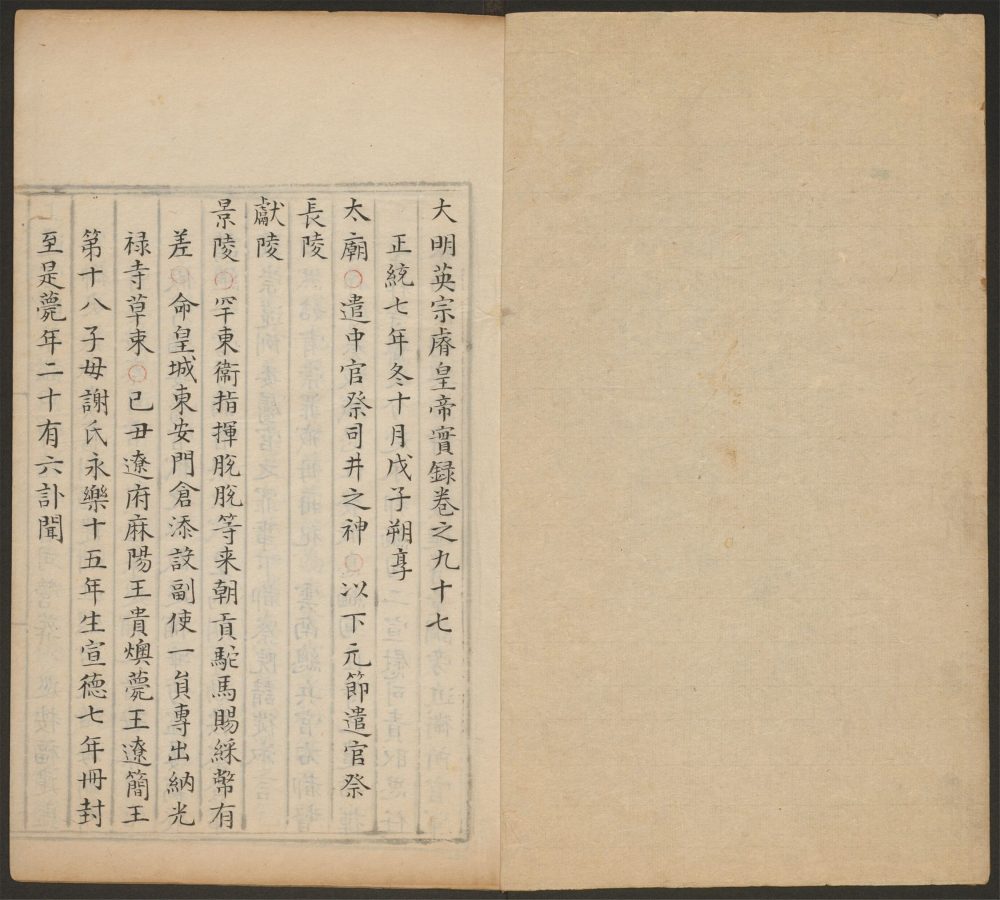 大明英宗睿皇帝實録卷之九十七
正統七年冬十月戊子朔享
太廟○遣中官祭司井之神○以下元節遣官祭
長陵
獻陵
景陵○罕東衞指揮脫脫等来朝貢駝馬賜綵幣有
差○命皇城東安門倉添設副使一員專出納光
禄寺草束○己丑遼府麻陽王貴燠薨王遼簡王
第十八子母謝氏永樂十五年生宣德七年冊封
至是薨年二十有六訃聞